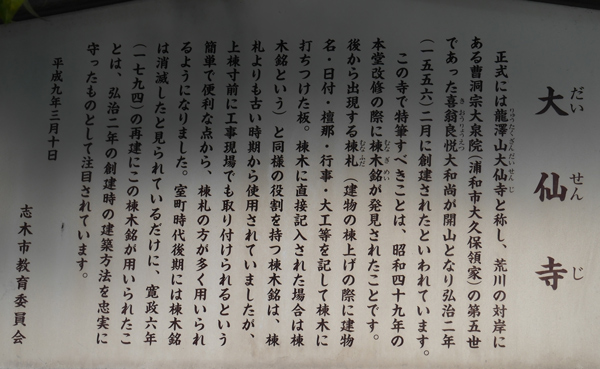 大仙寺
だいせんじ
正式には龍澤山大仙寺と称し、荒川の対岸に
りゅうたくさんだいせんじ
ある曹洞宗大泉院(浦和市大久保領家)の第五世
であった喜翁良悦大和尚が開山となり弘治二年
きおうりょうえつ
(一五五六)二月に創建されたといわれています。
この寺で特筆すべきことは、昭和四十九年の
本堂改修の際に棟木銘が発見されたことです。
むなぎめい
後から出現する棟札(建物の棟上げの際に建物
むなふだ
名・日付・檀那・行事・大工等を記して棟木に
打ちつけた板。棟木に直接記入された場合は棟
木銘という)と同様の役割を持つ棟木銘は、棟
札よりも古い時期から使用されていましたが、
上棟寸前に工事現場でも取り付けられるという
簡単で便利な点から、棟札の方が多く用いられ
るようになりました。室町時代後期には棟木銘
は消滅したと見られているだけに、寛政六年
(一七九四)の再建にこの棟木銘が用いられたこ
とは、弘治二年の創建時の建築方法を忠実に
守ったものとして注目されています。
平成九年三月十日
志木市教育委員会